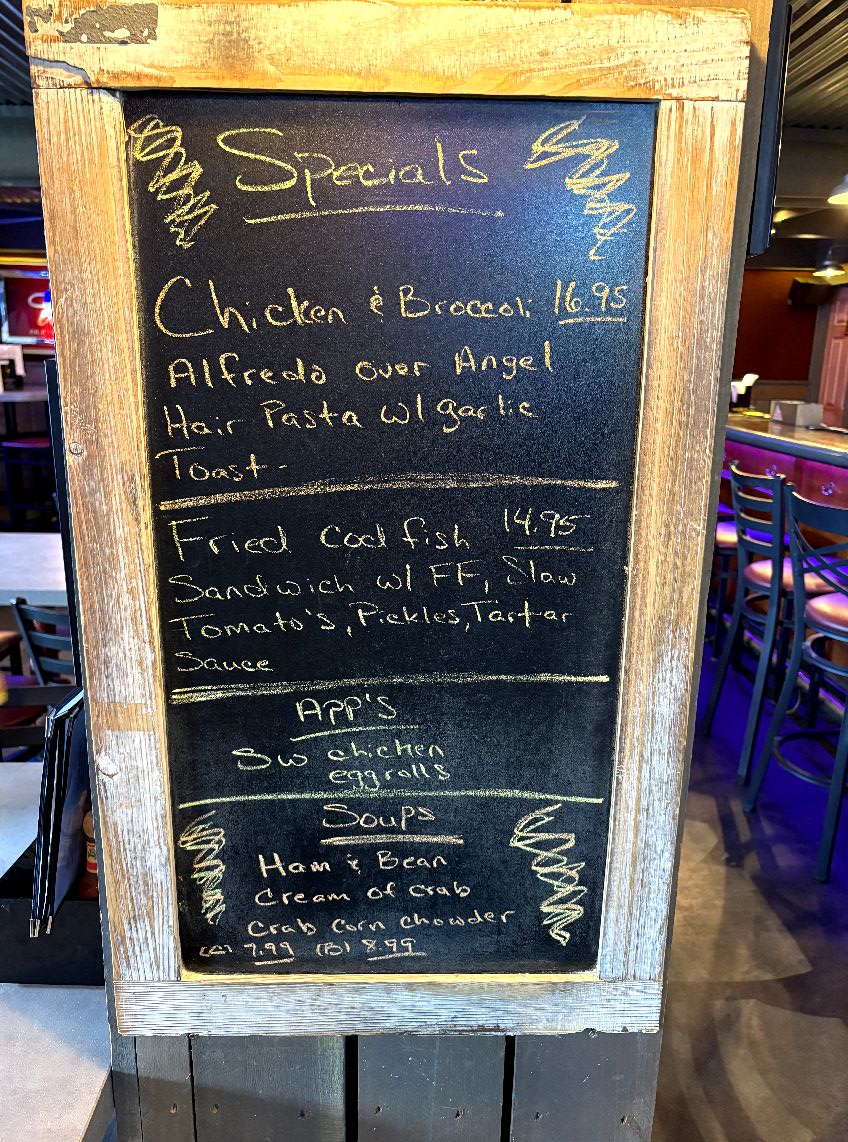 Specials
Chicken & Broccoli 16.95
Alfredo over Angel
Hair Pasta w/ garlic
Toast-
Fried Codfish 14.95
Sandwich w/ FF, Slaw
Tomato's, Pickles, Tartar
Sauce
APP'S
SW chicken
eggrolls
Soups
Ham & Bean
Cream of crab
Crab Corn chowder
(C) 7.99 (B) 8.99